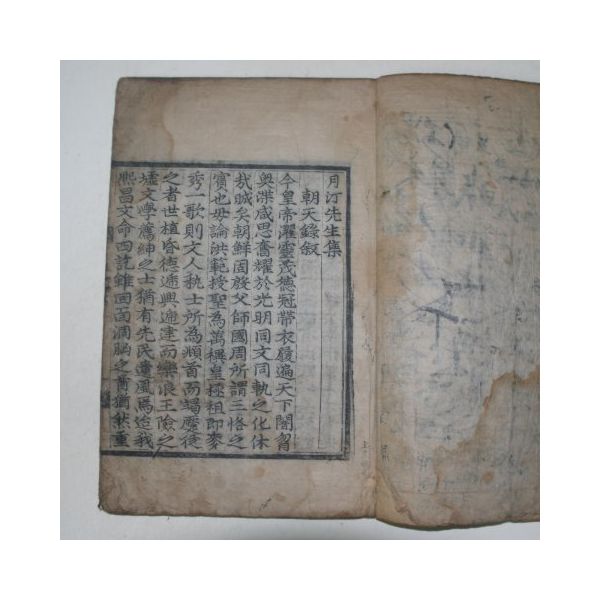 月汀先生集
朝天錄敘
今皇帝濯靈茂德冠帶衣履遍天下闇曶
奧渫咸思奮耀於光明同文同軌之化休
哉盛矣朝鮮固殷父師國周所謂三恪之
賓也毋論洪範授聖為萬禩皇極祖即麥
秀一歌則文人執士所為頫首而竭蹷從
之者世植昏德遞興遞建而樂浪王險之
墟文學薦紳之士猶有先民遺風焉迨我
熙昌文命四訖雖回面洞腦之酋猶然重